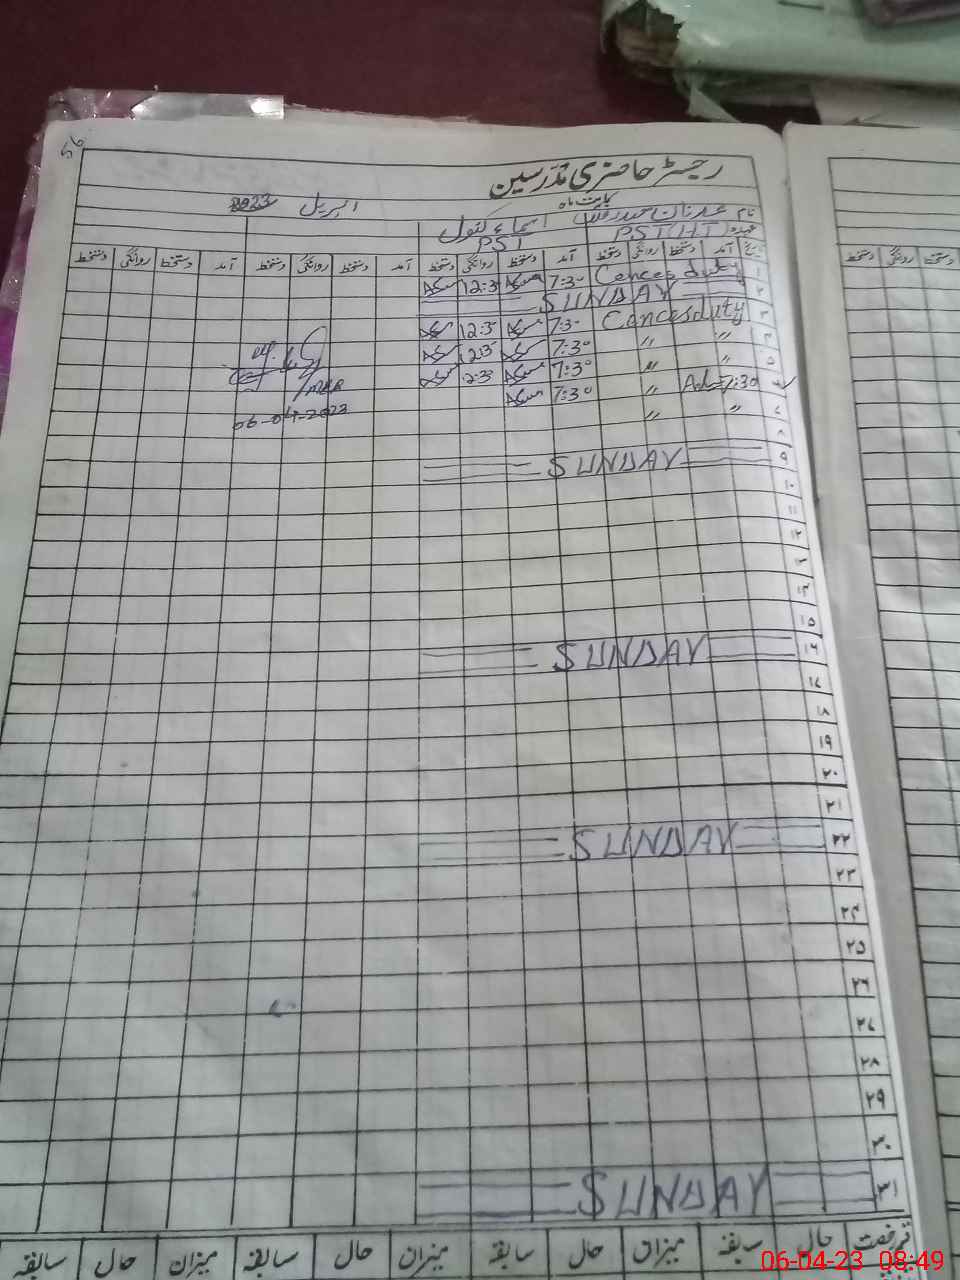 رجسٹر حاضری مدرسین
بابت ماہ اپریل 2023
نام عدنان حیدر اسماء کنول
عہدہ PST(HT) PST
تاریخ آمد دستخط روانگی دستخط آمد دستخط روانگی دستخط آمد دستخط روانگی دستخط آمد دستخط روانگی دستخط
۱ Cences duty 7:30 12:3
۲ SUNDAY
۳ Cences duty 7:30 12:3
۴ " " 7:30 12:3
۵ " " 7:30 12:3
۶ 7:30 " 7:30
۷ " "
06-04-2023
۸
۹ SUNDAY
۱۰
۱۱
۱۲
۱۳
۱۴
۱۵
۱۶ SUNDAY
۱۷
۱۸
۱۹
۲۰
۲۱
۲۲ SUNDAY
۲۳
۲۴
۲۵
۲۶
۲۷
۲۸
۲۹
۳۰
۳۱ SUNDAY
حال سابقہ میزان حال سابقہ میزان حال سابقہ میزان حال سابقہ
06-04-23 08:49